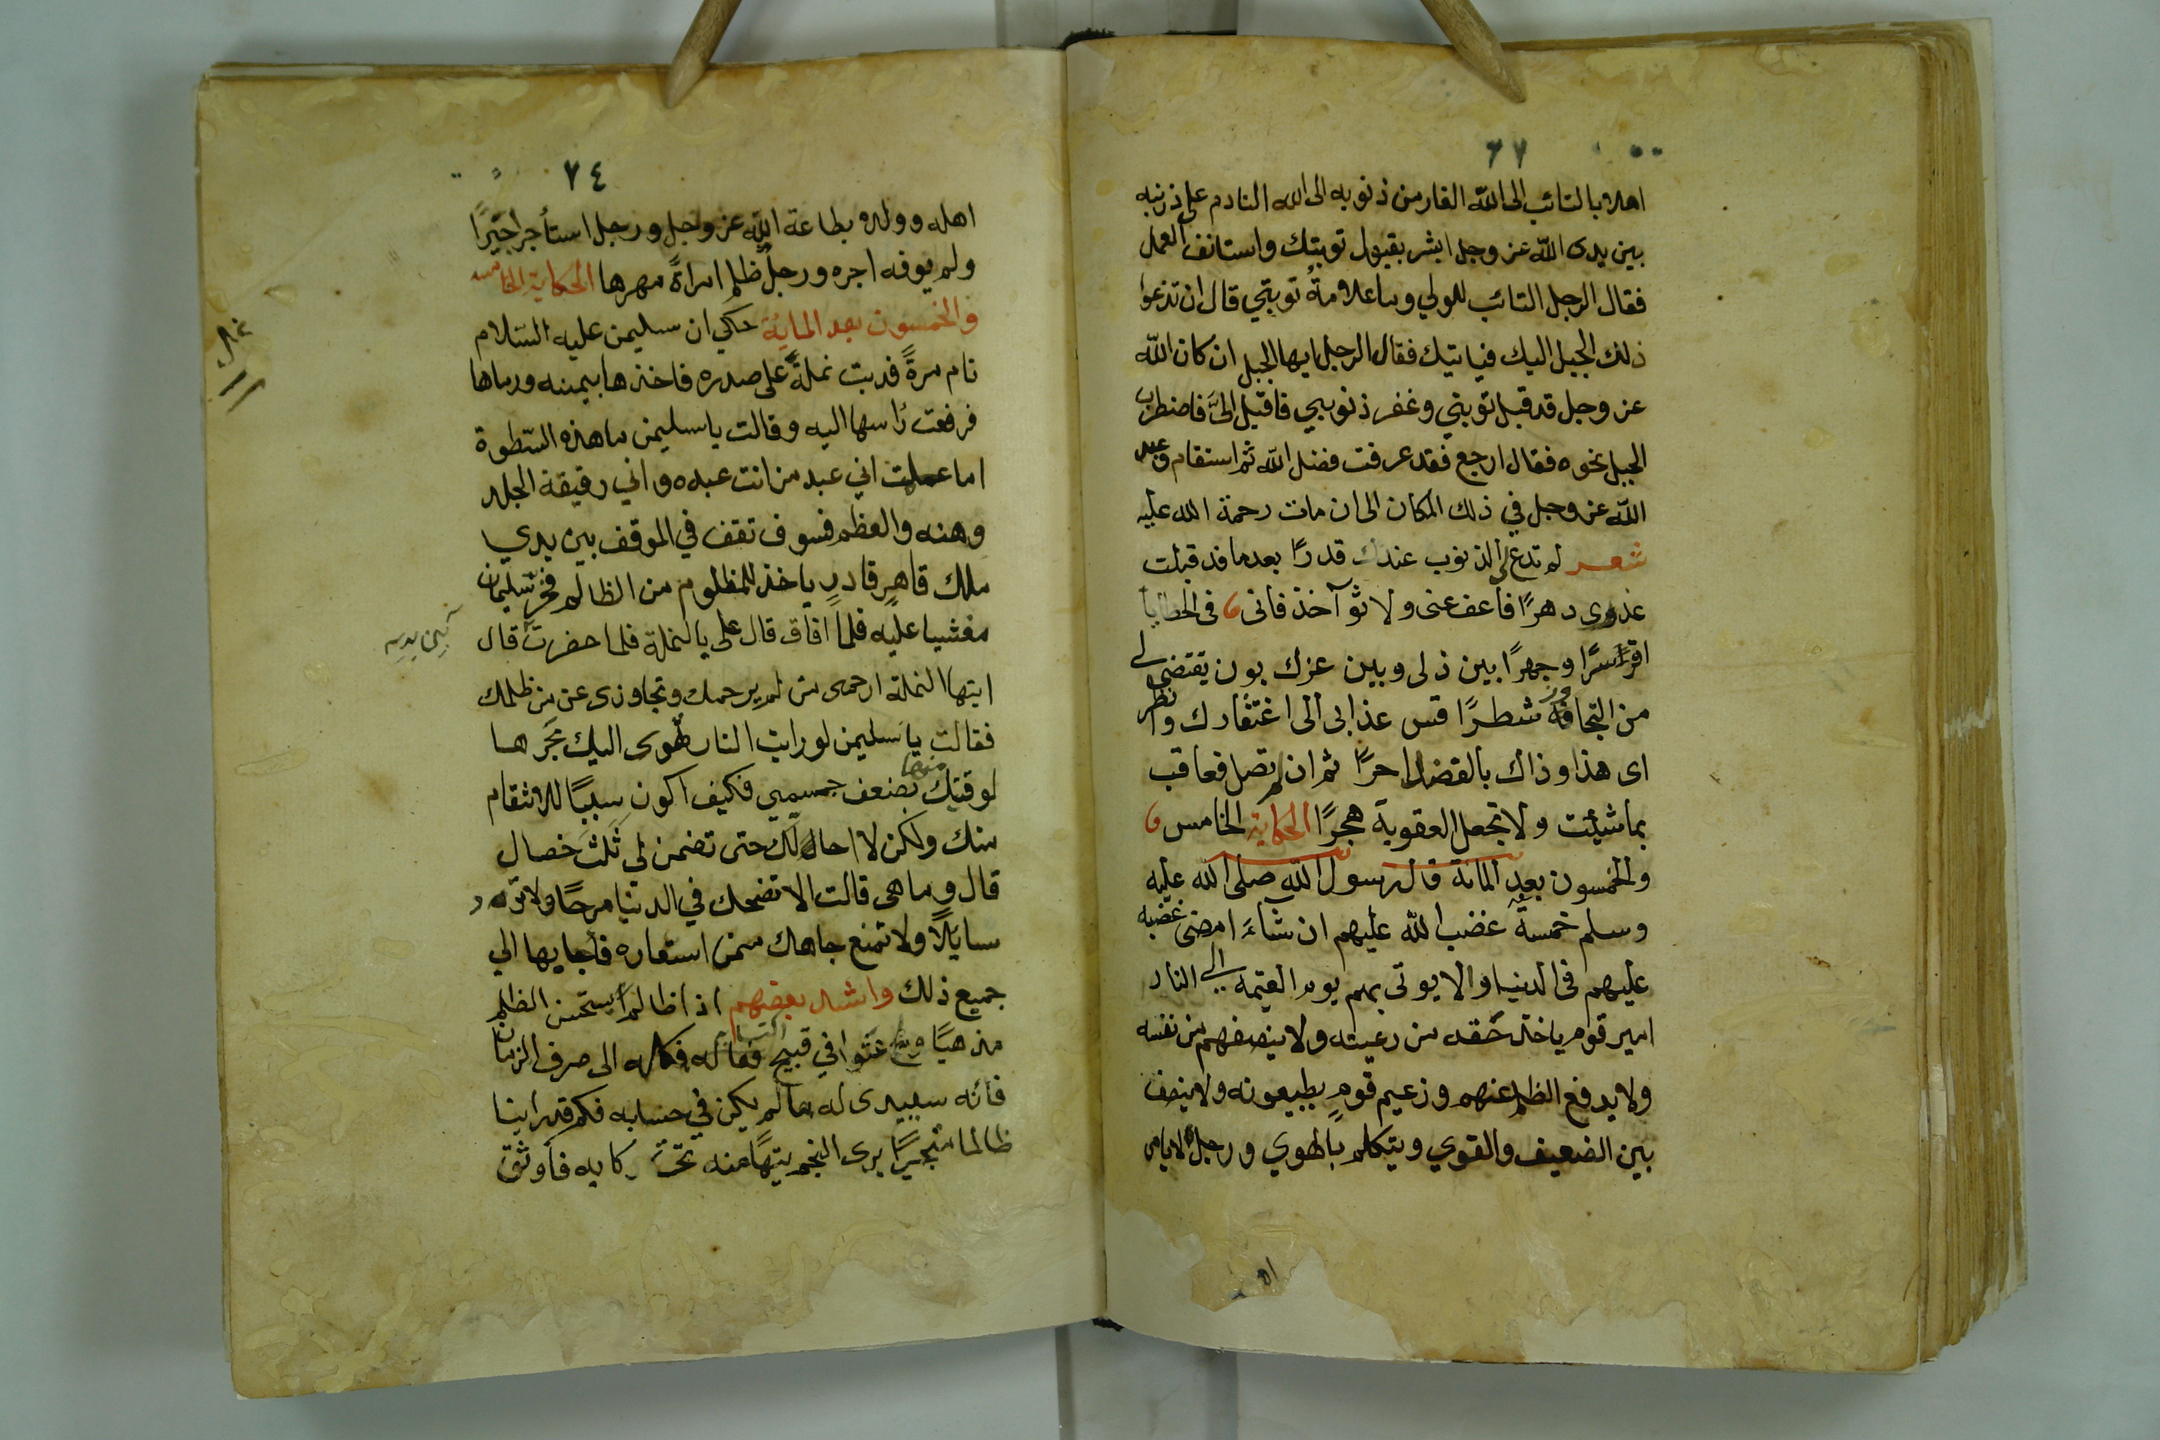 ٦٧
اهلا بالتائب الى الله الفار من ذنوبه الى الله النادم على ذنبه
بين يدى الله عز وجل ابشر بقبول توبتك واستانف العمل
فقال الرجل التائب للولي وما علامة توبتي قال ان تدعوا
ذلك الجبل اليك فياتيك فقال الرجل ايها الجبل ان كان الله
عز وجل قد قبل توبتي وغفر ذنوبي فاقبل الىَّ فاضطرب
الجبل نحوه فقال ارجع فقد عرفت فضل الله ثم استقام وعبد
الله عز وجل في ذلك المكان الى ان مات رحمة الله عليه
شعر لم تدع لى الذنوب عندك قدرًا بعدما قد قبلت
عذرى دهرًا فاعف عنى ولا تؤآخذ فانى فى الخطايا
اقر سرًا وجهرًا بين ذلى وبين عزك بون يقتضى لى
من التجاوز شطرًا قس عذابى الى اغتفارك وانظر
اى هذا وذاك بالفضل احرًا ثم ان لم تصل فعاقب
بما شيئت ولا تجعل العقوبة هجرًا الحكاية الخامس
والخمسون بعد المائة قال رسول الله صلى الله عليه
وسلم خمسة غضب الله عليهم ان شآءَ امضى غضبه
عليهم فى الدنيا والا يوتى بهم يوم القيمة الى النار
امير قوم ياخذ حقه من رعيته ولا ينصفهم من نفسه
ولا يدفع الظلم عنهم وزعيم قوم يطيعونه ولا ينصف
بين الضعيف والقوي ويتكلم بالهوي ورجل لا يامر
٥١
٧٤
اهله وولده بطاعة الله عز وجل ورجل استأجر اجيرًا
ولم يوفه اجره ورجل ظلم امراةً مهرها الحكاية الخامسه
والخمسون بعد الماية حكي ان سليمن عليه السّلام
نام مرةً فدبت نملةٌ على صدره فاخذها بيمينه ورماها
فرفعت رأسها اليه وقالت يا سليمن ما هذه السّطوة
اما عملت اني عبد من انت عبده واني رقيقة الجلد
وهنه والعظم فسوف تقف في الموقف بين يدي
ملك قاهرٍ قادرٍ ياخذ للمظلوم من الظالم فخرّ سليمان
مغشيا عليه فلما افاق قال على بالنملة فلما حضرت قال
بين يديه
ايتها النملة ارحمى من لم يرحمك وتجاوزى عن من ظلمك
فقالت يا سليمن لو رايت النار تهوى اليك بجرها
لوقيتك منها بضعف جسمي فكيف اكون سببًا للانتقام
منك ولكن لا احالك حتى تضمن لى ثلث خصال
قال وما هى قالت الا تضحك في الدنيا مرحًا ولا ترد
سايلاً ولا تمنع جاهك ممن استعاره فأجابها الي
جميع ذلك وانشد بعضهم اذا ظالمًا يستحسن الظلم
مذهبًا عتوا في قبيح اكتسابه فكله الى صرف الزمان
فانه سيبدى له ما لم يكن في حسابه فكم قد راينا
ظالما متجبرًا يرى النجم يتهًا منه تحت ركابه فاوثق